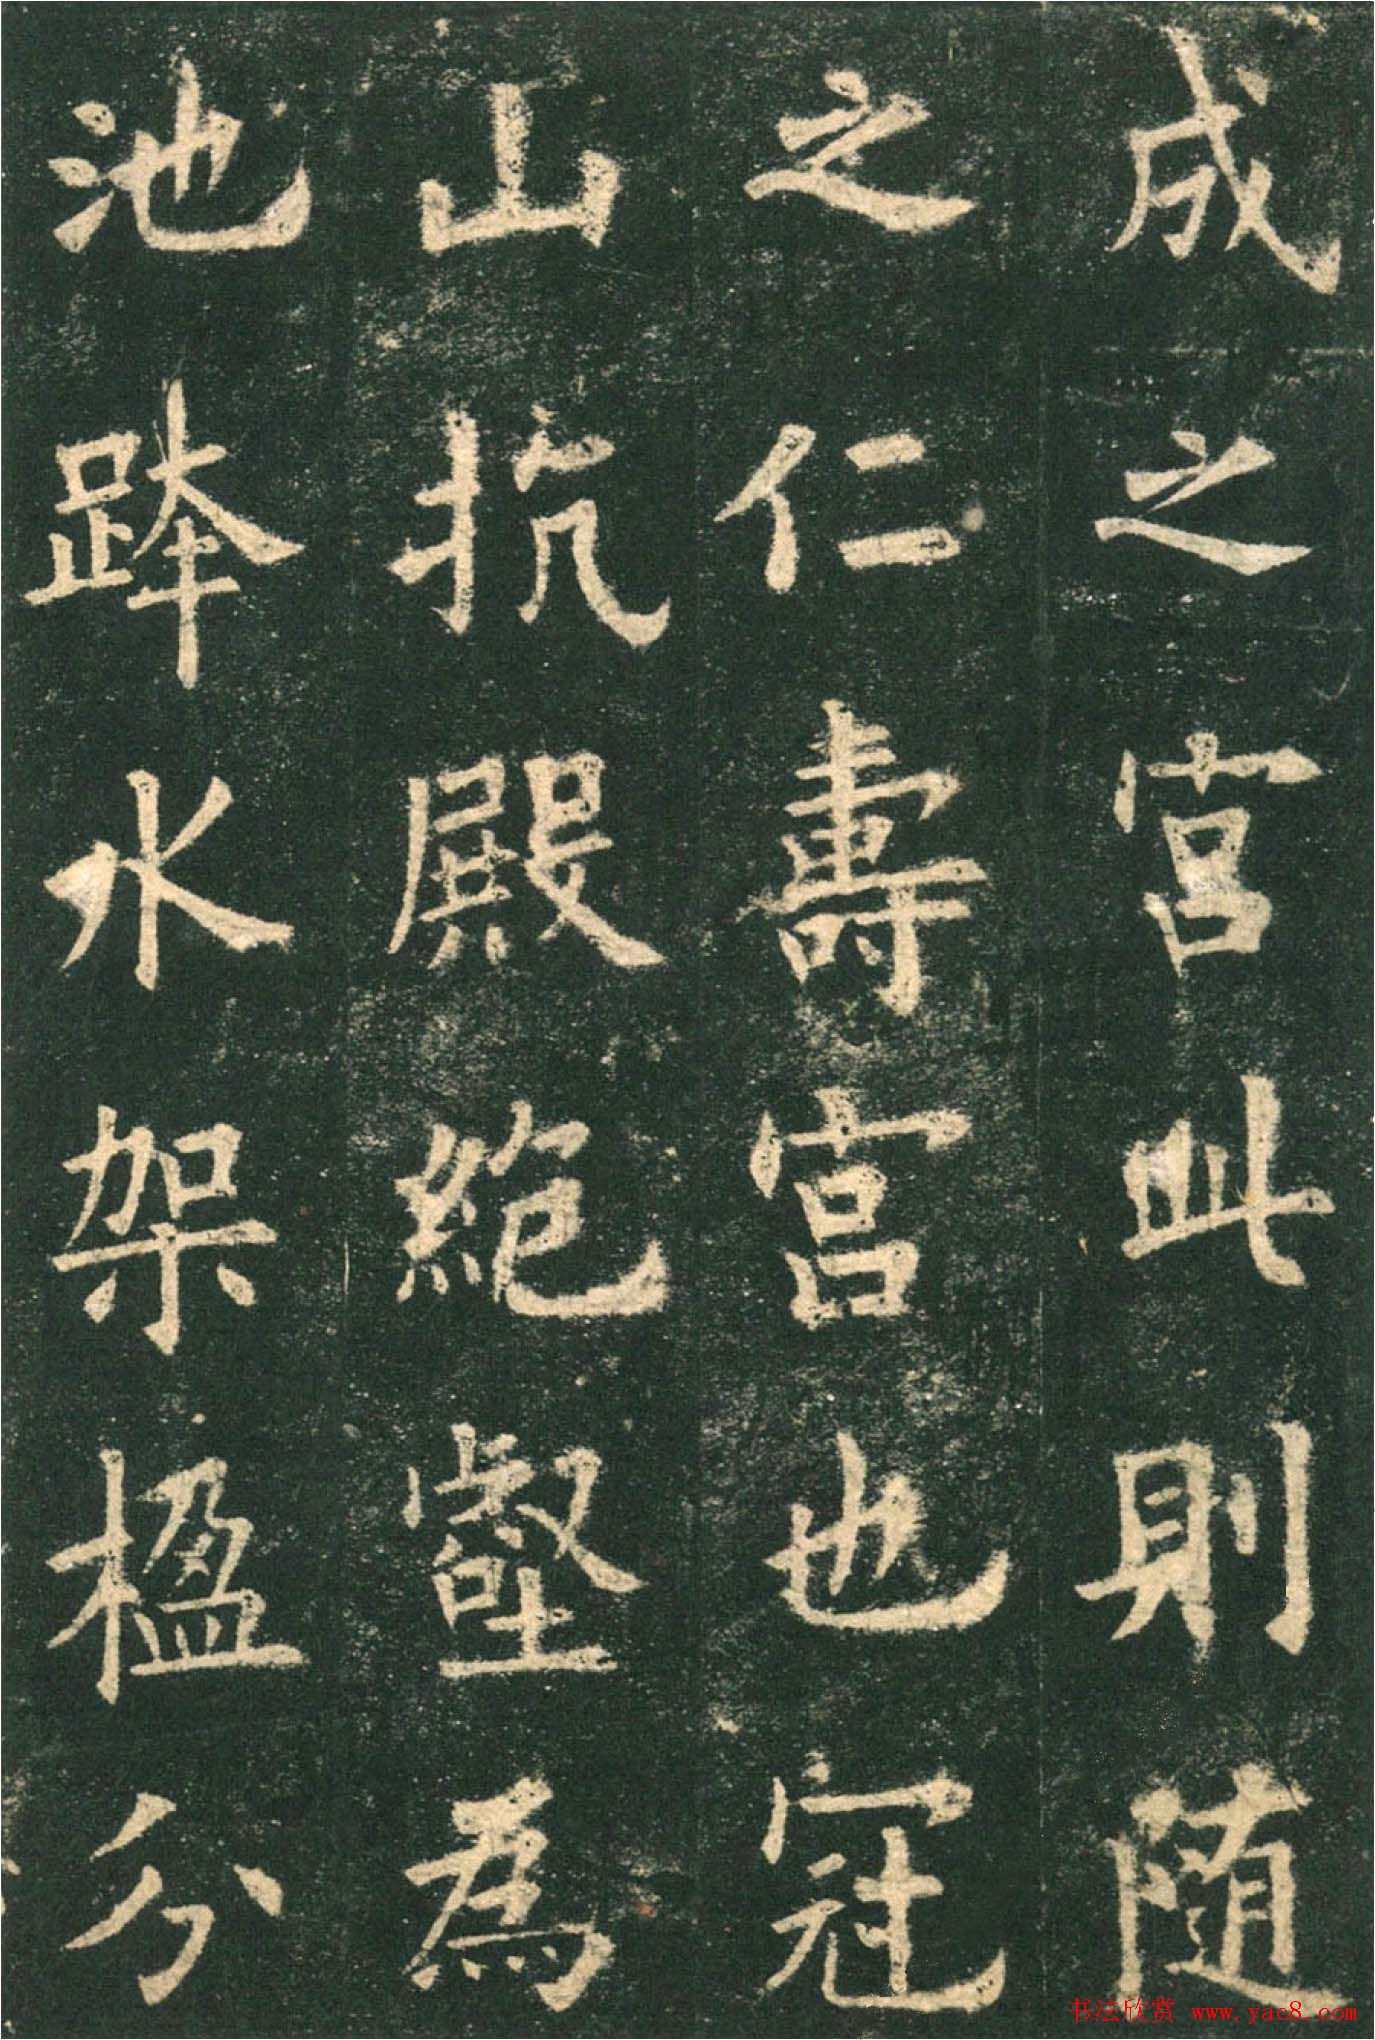 成之宮此則随
之仁壽宮也冠
山抗殿絶壑為
池跨水架楹分
书法欣赏 www.yac8.com